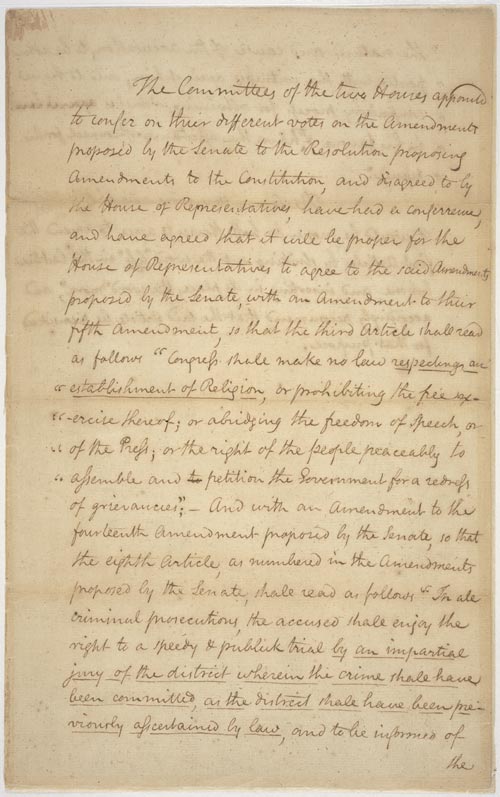 The Committees of the two Houses appointed
to confer on their different votes on the Amendments
proposed by the Senate to the Resolution proposing
Amendments to the Constitution, and disagreed to by
the House of Representatives, have had a conference,
and have agreed that it will be proper for the
House of Representatives to agree to the said Amendments
proposed by the Senate, with an Amendment to their
fifth Amendment, so that the third Article shall read
as follows "Congress shall make no law respecting an
"establishment of Religion, or prohibiting the free ex-
"ercise thereof; or abridging the freedom of Speech, or
"of the Press; or the right of the people peaceably to
"assemble and to petition the Government for a redress
of grievances"; – And with an Amendment to the
fourteenth Amendment proposed by the Senate, so that
the eighth Article, as numbered in the Amendments
proposed by the Senate, shall read as follows "In all
criminal prosecutions, the accused shall enjoy the
right to a speedy & publick trial by an impartial
jury of the district wherein the crime shall have
been committed, as the district shall have been pre-
viously ascertained by law, and to be informed of
the